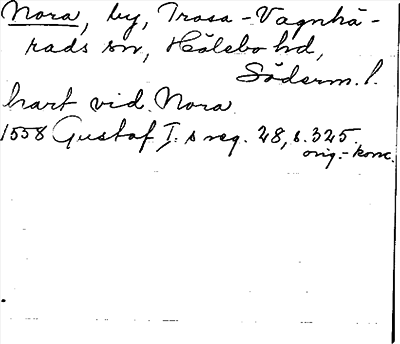 Nora, by, Trosa-Vagnhä-
rads sn, Hölebo hd,
Söderm. l.
hart vid Nora
1558 Gustaf I.s reg. 28, s. 325.
orig.-konc.